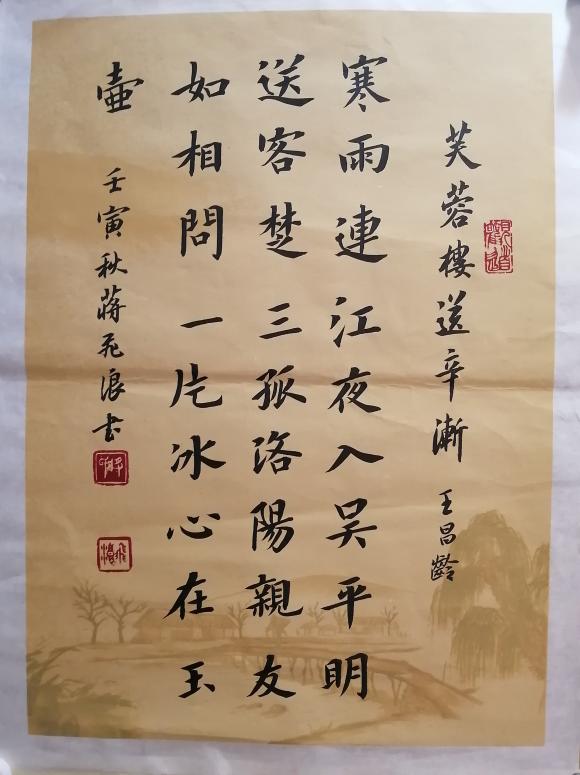 芙蓉樓送辛漸 王昌齡
寒雨連江夜入吴平明
送客楚三孤洛陽親友
如相問一片冰心在玉
壺 壬寅秋蔣飛浪书